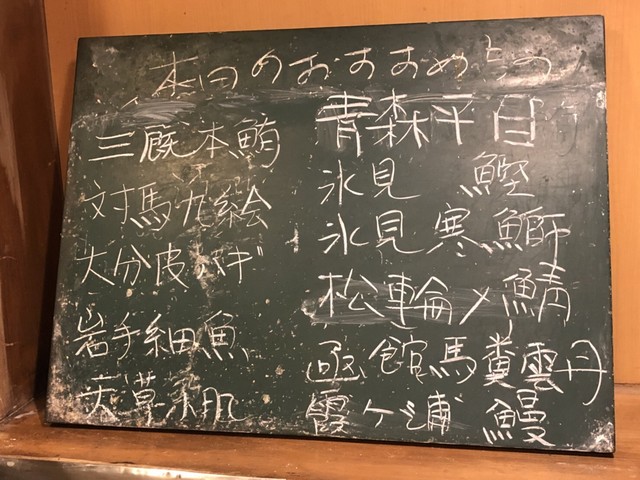 本日のおすすめもの
三厩本鮪
対馬九絵
大分皮ハギ
岩手細魚
天草小肌
青森平目
氷見 鰹
氷見寒鰤
松輪〆鯖
函館馬糞雲丹
霞ヶ浦 鰻